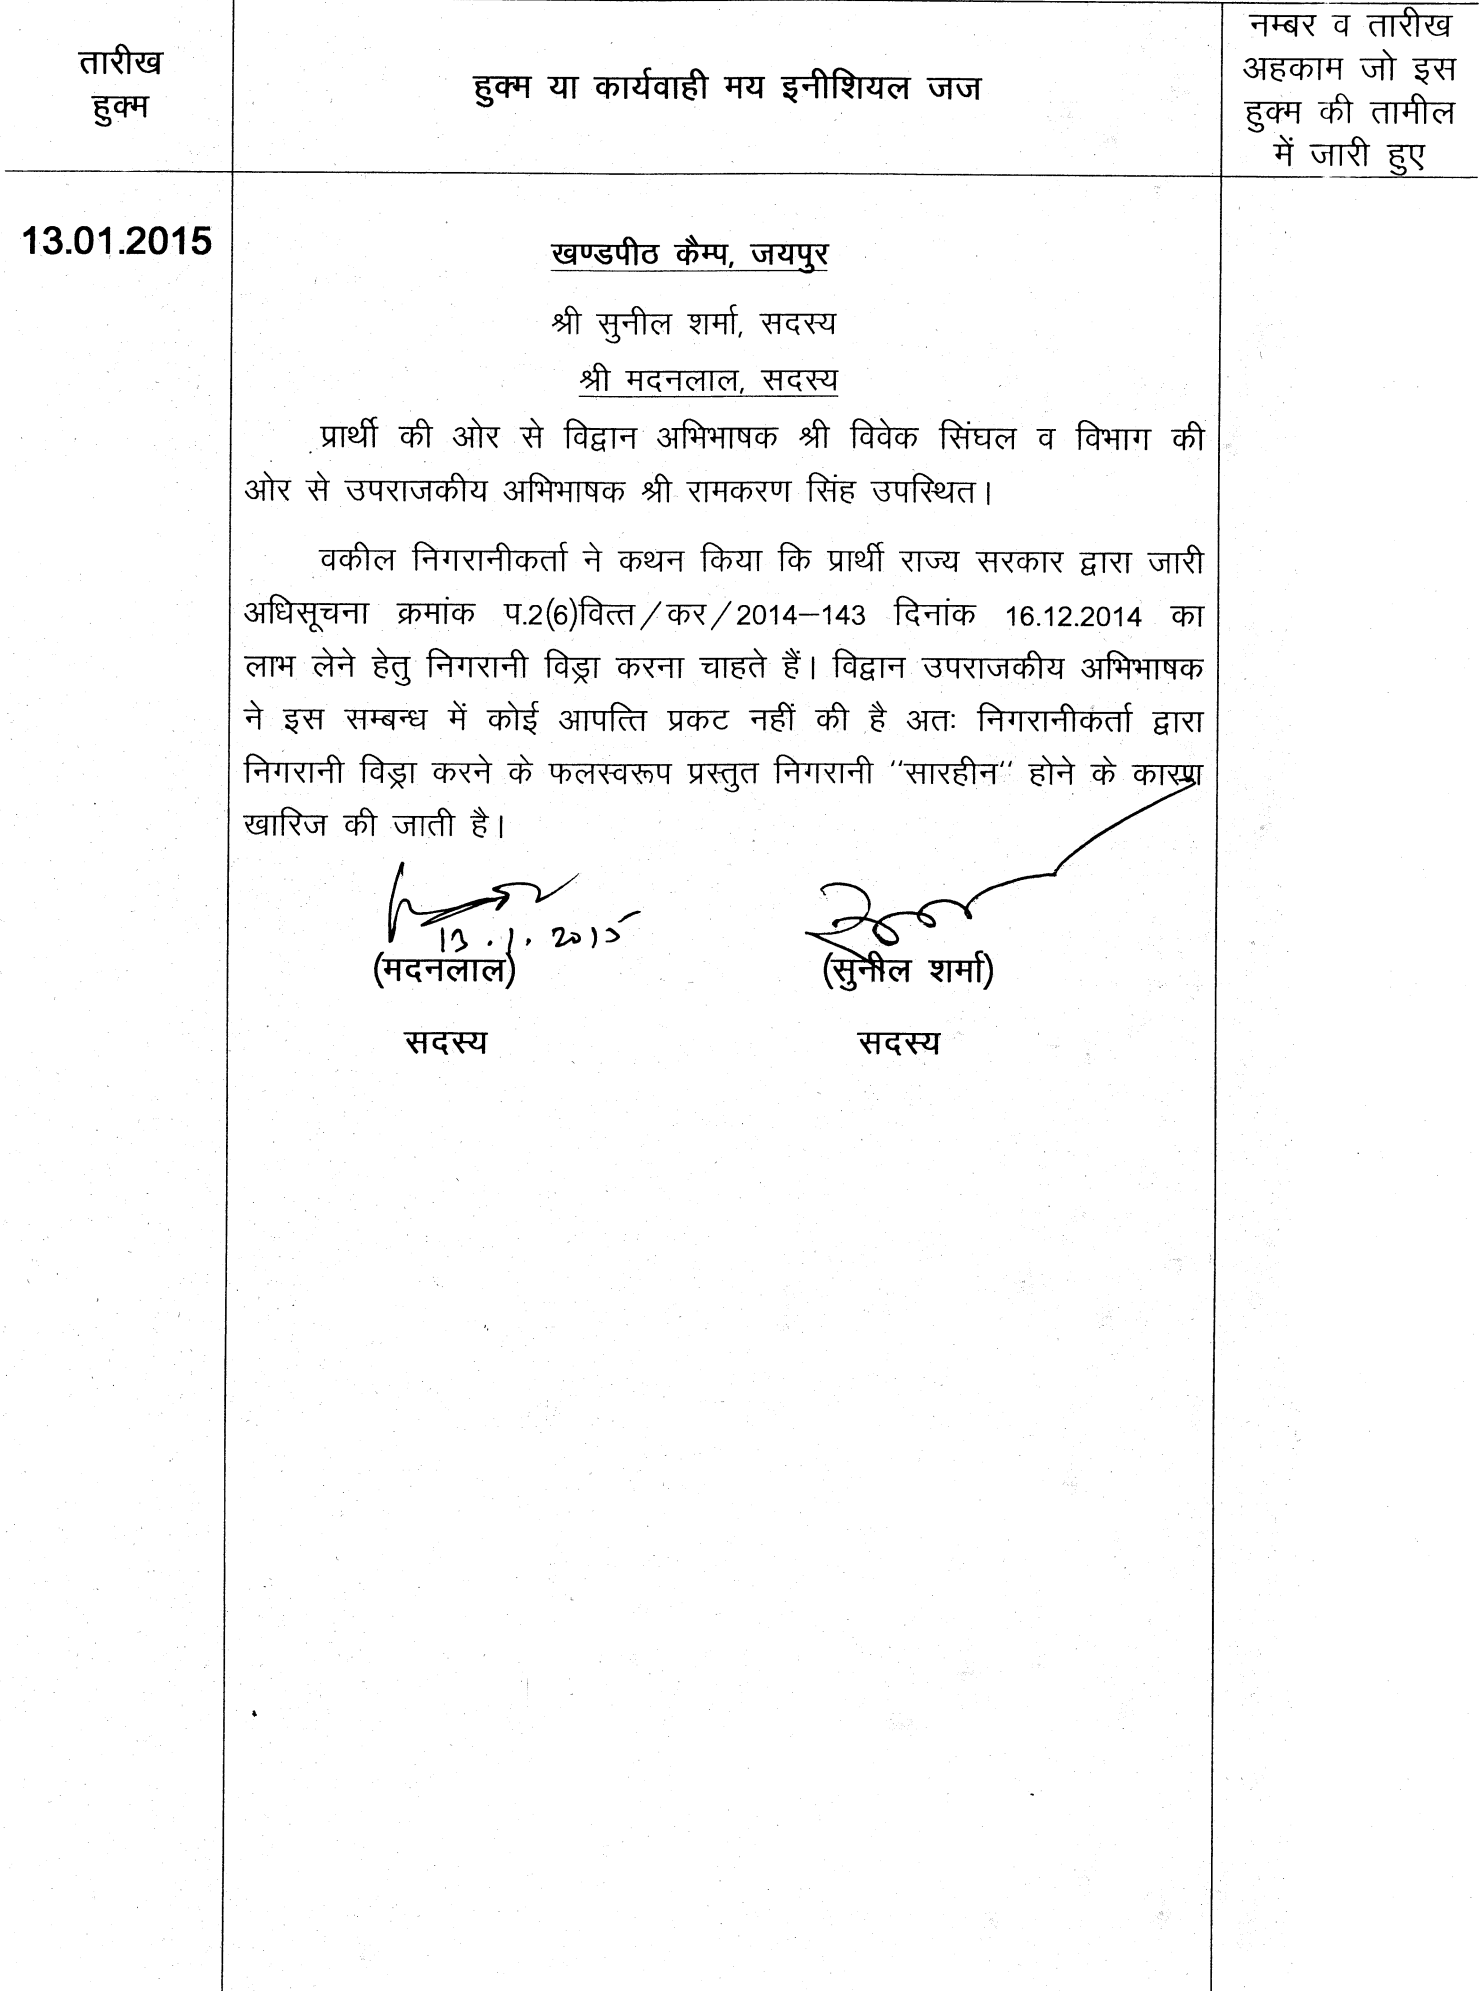 तारीख
हुक्म
हुक्म या कार्यवाही मय इनीशियल जज
नम्बर व तारीख
अहकाम जो इस
हुक्म की तामील
में जारी हुए
13.01.2015
खण्डपीठ कैम्प, जयपुर
श्री सुनील शर्मा, सदस्य
श्री मदनलाल, सदस्य
प्रार्थी की ओर से विद्वान अभिभाषक श्री विवेक सिंघल व विभाग की
ओर से उपराजकीय अभिभाषक श्री रामकरण सिंह उपस्थित।
वकील निगरानीकर्ता ने कथन किया कि प्रार्थी राज्य सरकार द्वारा जारी
अधिसूचना क्रमांक प.2(6)वित्त/कर/2014–143 दिनांक 16.12.2014 का
लाभ लेने हेतु निगरानी विड्रा करना चाहते हैं। विद्वान उपराजकीय अभिभाषक
ने इस सम्बन्ध में कोई आपत्ति प्रकट नहीं की है अतः निगरानीकर्ता द्वारा
निगरानी विड्रा करने के फलस्वरूप प्रस्तुत निगरानी ''सारहीन'' होने के कारण
खारिज की जाती है।
13.1.2015
(मदनलाल) (सुनील शर्मा)
सदस्य सदस्य